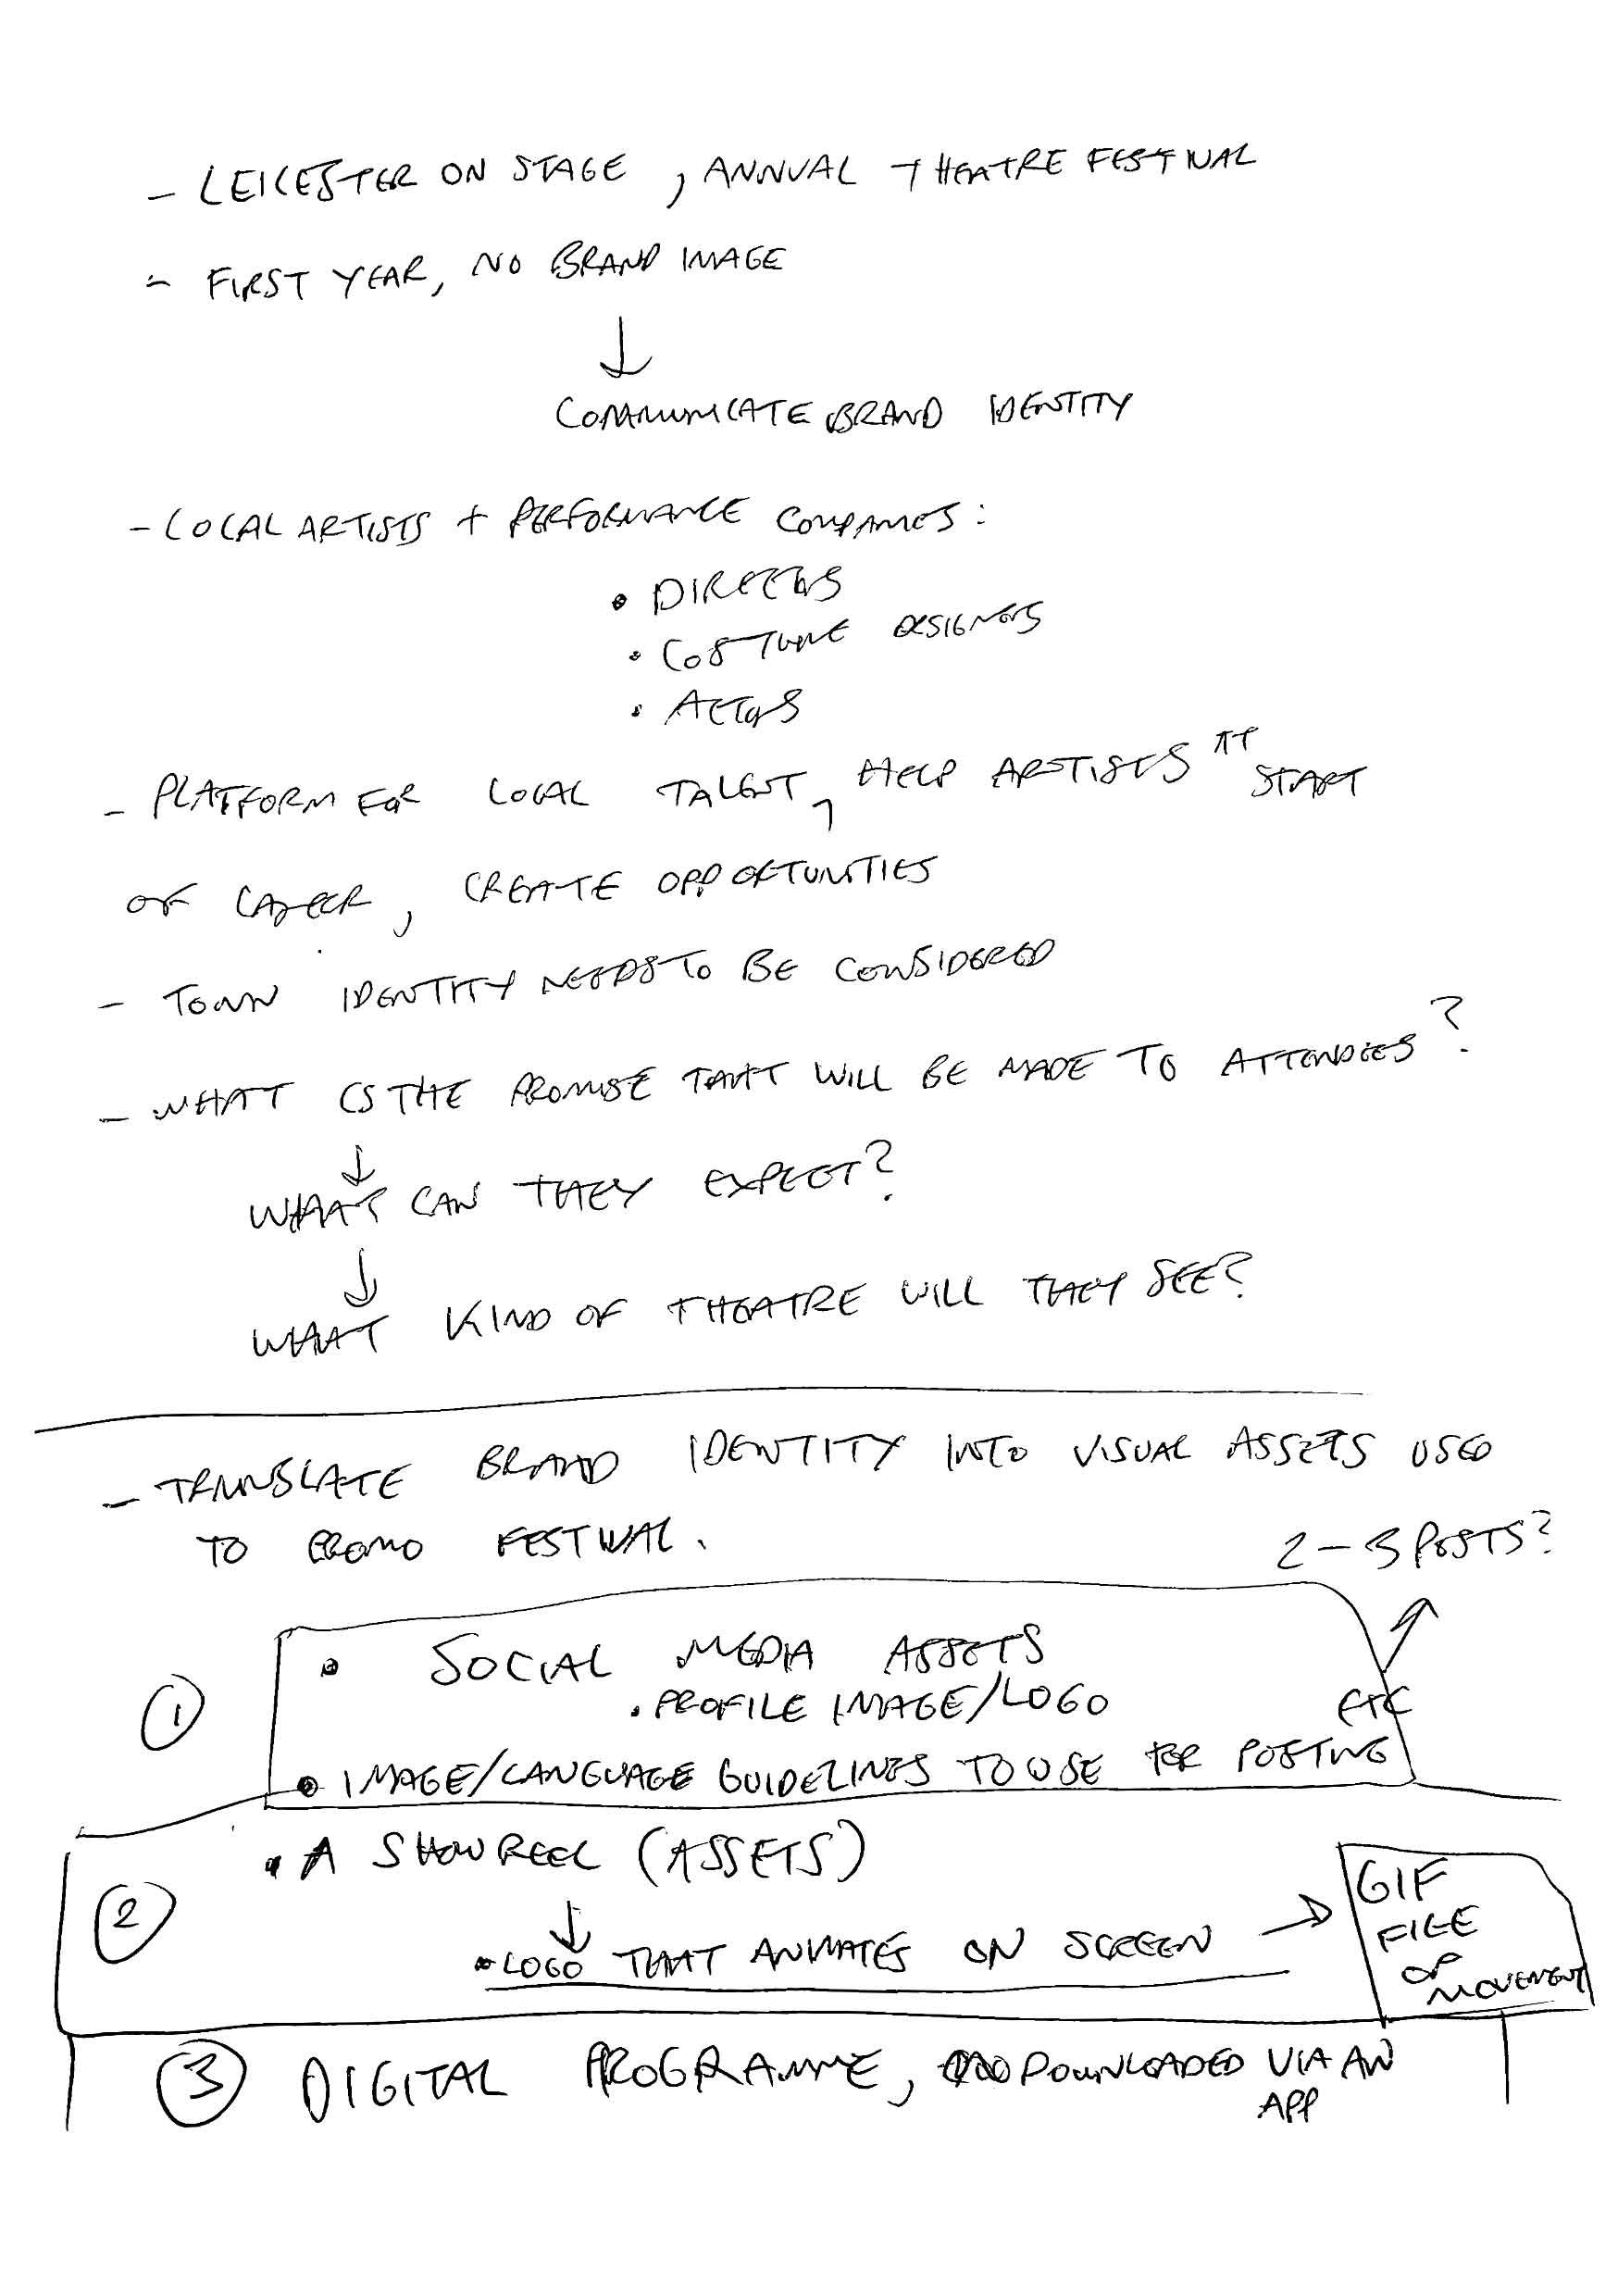 - LEICESTER ON STAGE, ANNUAL THEATRE FESTIVAL
- FIRST YEAR, NO BRAND IMAGE
↓
COMMUNICATE BRAND IDENTITY
- LOCAL ARTISTS + PERFORMANCE COMPANIES:
• DIRECTORS
• COSTUME DESIGNERS
• ACTORS
- PLATFORM FOR LOCAL TALENT, HELP ARTISTS AT START
OF CAREER, CREATE OPPORTUNITIES
- TOWN IDENTITY NEEDS TO BE CONSIDERED
- WHAT IS THE PROMISE THAT WILL BE MADE TO ATTENDEES?
↓
WHAT CAN THEY EXPECT?
↓
WHAT KIND OF THEATRE WILL THEY SEE?
- TRANSLATE BRAND IDENTITY INTO VISUAL ASSETS USED
TO PROMO FESTIVAL.
2-3 POSTS?
① • SOCIAL MEDIA ASSETS
• PROFILE IMAGE/LOGO ETC
• IMAGE/LANGUAGE GUIDELINES TO USE FOR POSTING
② • A SHOWREEL (ASSETS)
↓
• LOGO THAT ANIMATES ON SCREEN →
GIF
FILE
OF
MOVEMENT
③ DIGITAL PROGRAMME, DOWNLOADED VIA AN
APP